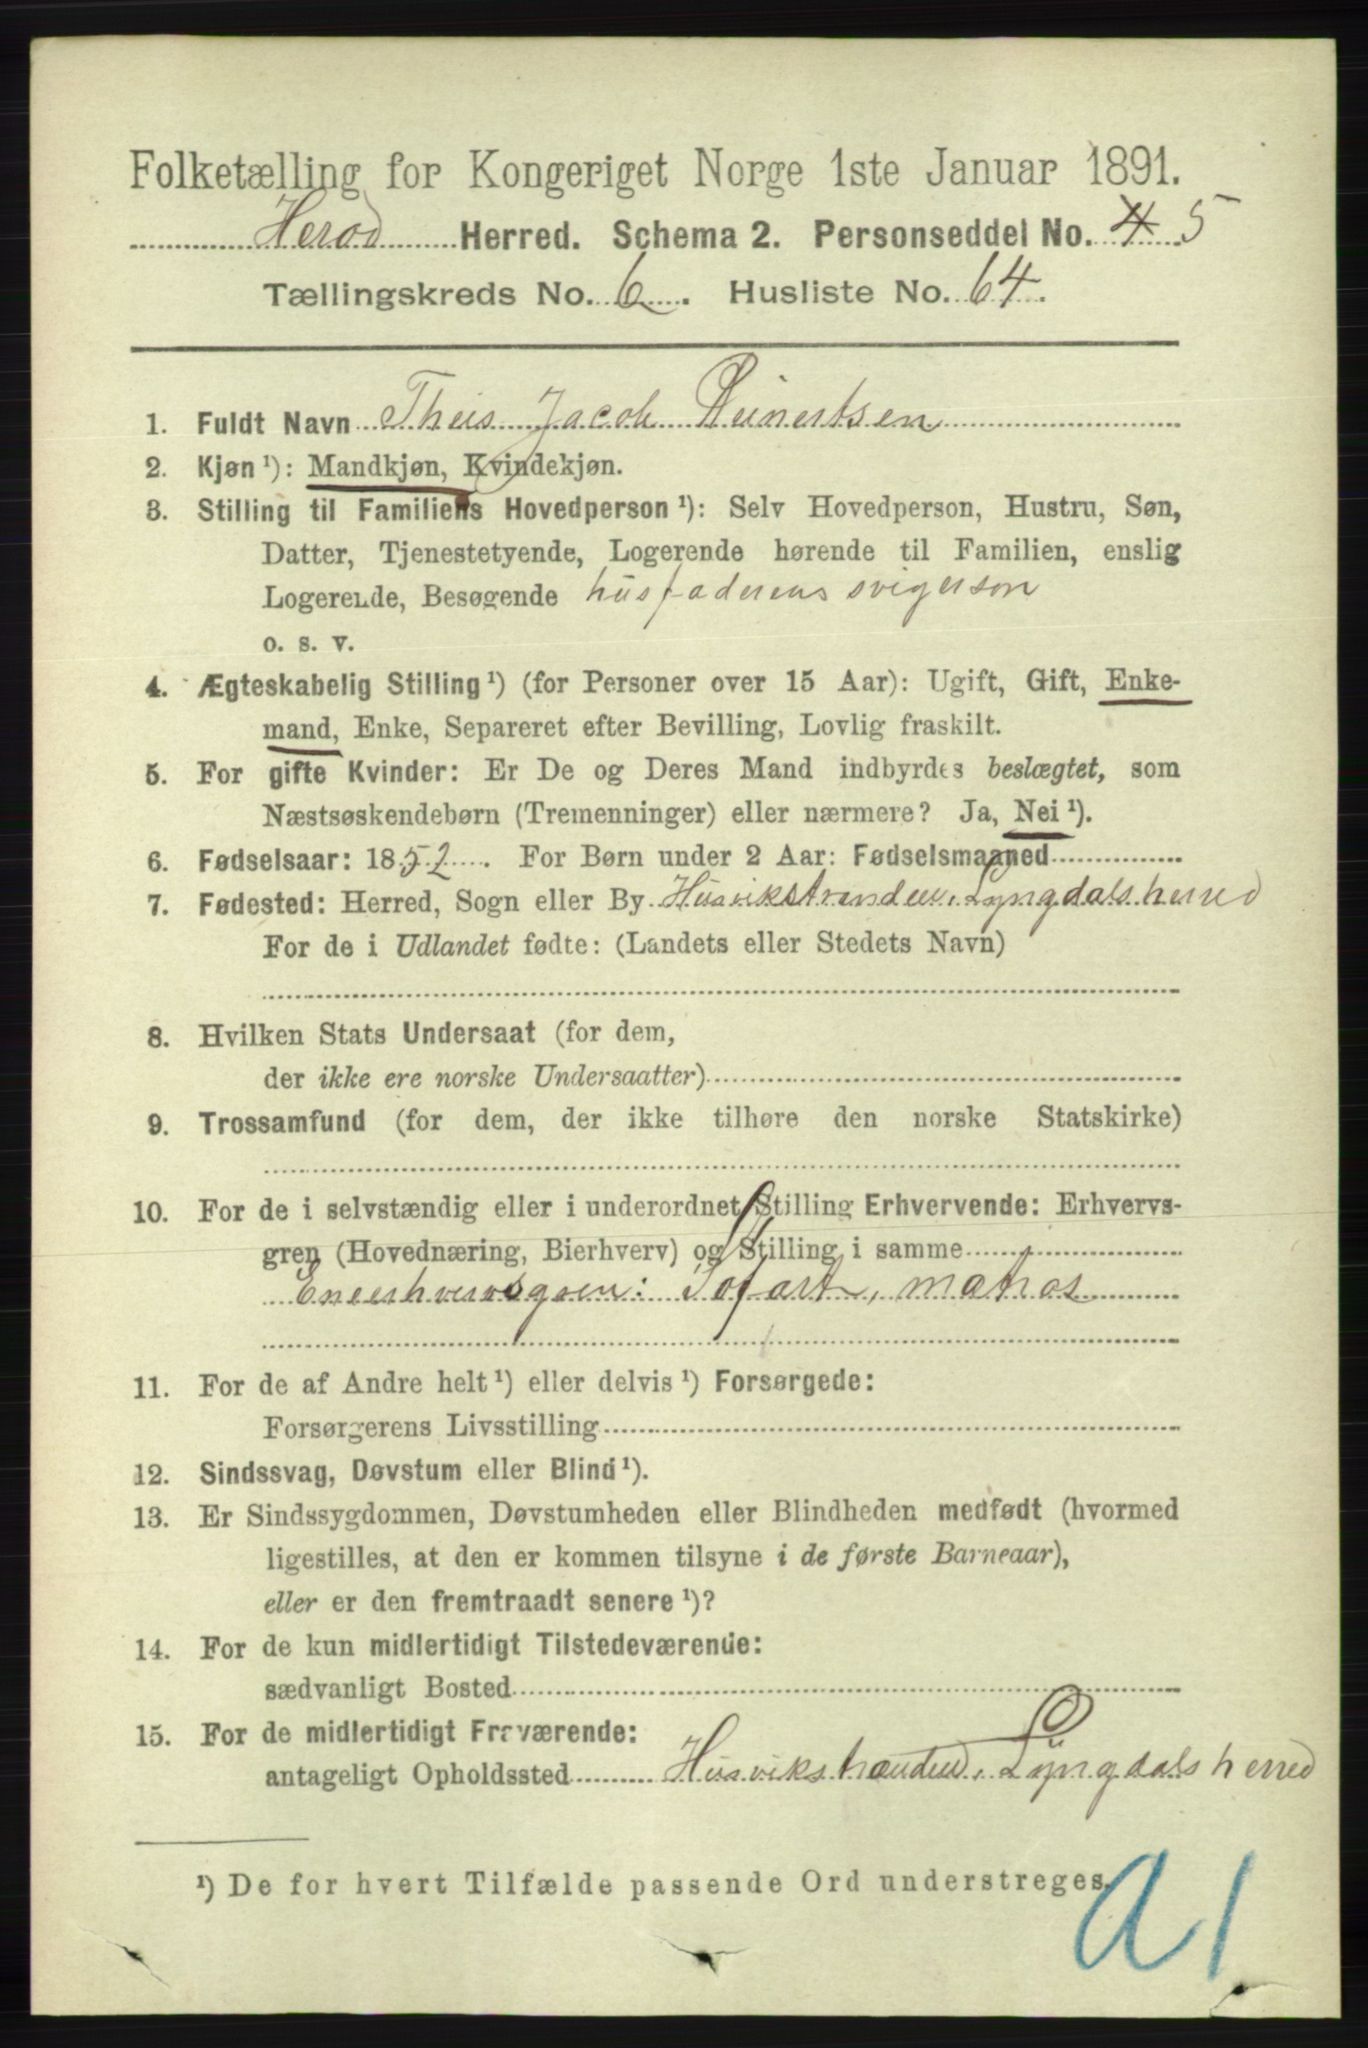 Folketælling for Kongeriget Norge 1ste Januar 1891.
Herod Herred. Schema 2. Personseddel No. 4 5
Tællingskreds No. 6. Husliste No. 64.
1. Fuldt Navn Theis Jacob Reinertsen
2. Kjøn ¹): Mandkjøn, Kvindekjøn.
3. Stilling til Familiens Hovedperson ¹): Selv Hovedperson, Hustru, Søn,
Datter, Tjenestetyende, Logerende hørende til Familien, enslig
Logerende, Besøgende husfaderens svigerson
o. s. v.
4. Ægteskabelig Stilling ¹) (for Personer over 15 Aar): Ugift, Gift, Enke-
mand, Enke, Separeret efter Bevilling, Lovlig fraskilt.
5. For gifte Kvinder: Er De og Deres Mand indbyrdes beslægtet, som
Næstsøskendebørn (Tremenninger) eller nærmere? Ja, Nei ¹).
6. Fødselsaar: 1852. For Børn under 2 Aar: Fødselsmaaned
7. Fødested: Herred, Sogn eller By Husvikstranden, Lyngdals herred
For de i Udlandet fødte: (Landets eller Stedets Navn)
8. Hvilken Stats Undersaat (for dem,
der ikke ere norske Undersaatter)
9. Trossamfund (for dem, der ikke tilhøre den norske Statskirke)
10. For de i selvstændig eller i underordnet Stilling Erhvervende: Erhvervs-
gren (Hovednæring, Bierhverv) og Stilling i samme
Eneerhvervsgren: Sofart, matros
11. For de af Andre helt ¹) eller delvis ¹) Forsørgede:
Forsørgerens Livsstilling
12. Sindssvag, Døvstum eller Blind ¹).
13. Er Sindssygdommen, Døvstumheden eller Blindheden medfødt (hvormed
ligestilles, at den er kommen tilsyne i de første Barneaar),
eller er den fremtraadt senere ¹)?
14. For de kun midlertidigt Tilstedeværende:
sædvanligt Bosted
15. For de midlertidigt Fraværende:
antageligt Opholdssted Husvikstranden, Lyngdals herred
¹) De for hvert Tilfælde passende Ord understreges.
a1